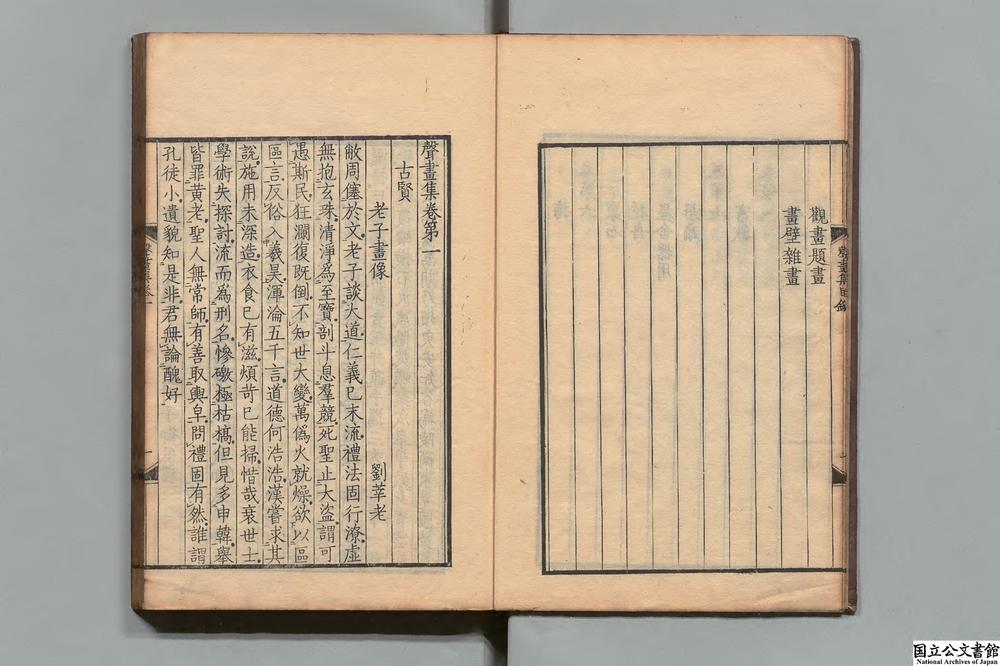 觀畫題畫
畫壁雜畫
聲畫集目錄
聲畫集卷第一
古賢
老子畫像
劉莘老
敝周僿於文老子談大道仁義已末流禮法固行潦虛
無抱玄珠清淨爲至寶剖斗息羣競死聖止大盜謂可
愚斯民狂瀾復旣倒不知世大變萬僞火就燥欲以區
區言反俗入羲昊渾淪五千言道德何浩浩漢嘗求其
說施用未深造衣食已有滋煩苛已能掃惜哉衰世士
學術失探討流而爲刑名慘礉極枯槁但見多申韓舉
皆罪黃老聖人無常師有善取輿皁問禮固有然誰謂
孔徒小遺貌知是非君無論醜好
国立公文書館
National Archives of Japan